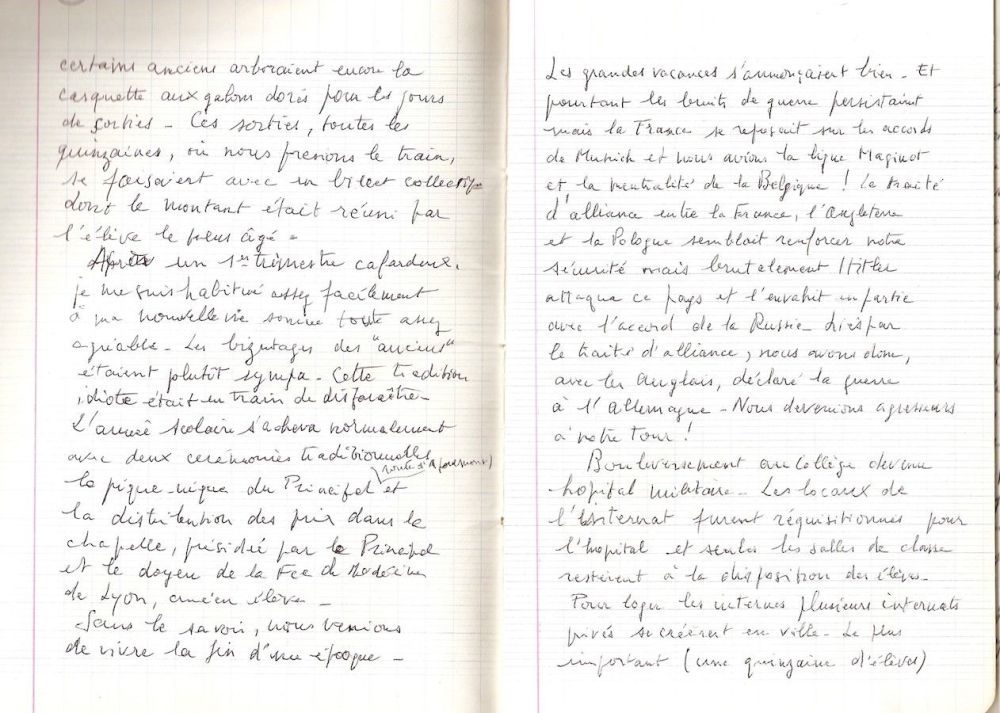 certains anciens arboraient encore la
casquette aux galons dorés pour les jours
de sorties - Ces sorties, toutes les
quinzaines, où nous prenions le train,
se faisaient avec un billet collectif
dont le montant était réuni par
l'élève le plus âgé -
Après un 1er trimestre cafardeux,
je me suis habitué assez facilement
à ma nouvelle vie somme toute assez
agréable - Les bizutages des "anciens"
étaient plutôt sympa - Cette tradition
idiote était en train de disparaître -
L'année scolaire s'acheva normalement
avec deux cérémonies traditionnelles
(route d'Apremont)
le pique-nique du Principal et
la distribution des prix dans la
chapelle, présidée par le Principal
et le doyen de la Fac de Médecine
de Lyon, ancien élève -
Sans le savoir, nous venions
de vivre la fin d'une époque -
Les grandes vacances s'annonçaient bien - Et
pourtant les bruits de guerre persistaient
mais la France se reposait sur les accords
de Munich et nous avions la ligne Maginot
et la neutralité de la Belgique ! Le traité
d'alliance entre la France, l'Angleterre
et la Pologne semblait renforcer notre
sécurité mais brutalement Hitler
attaqua ce pays et l'envahit en partie
avec l'accord de la Russie - liés par
le traité d'alliance, nous avons donc,
avec les Anglais, déclaré la guerre
à l'Allemagne - Nous devenions agresseurs
à notre tour !
Bouleversement au Collège devenu
hopital militaire - Les locaux de
l'Internat furent réquisitionnés pour
l'hopital et seules les salles de classe
restèrent à la disposition des élèves -
Pour loger les internes plusieurs internats
privés se créèrent en ville - Le plus
important (une quinzaine d'élèves)